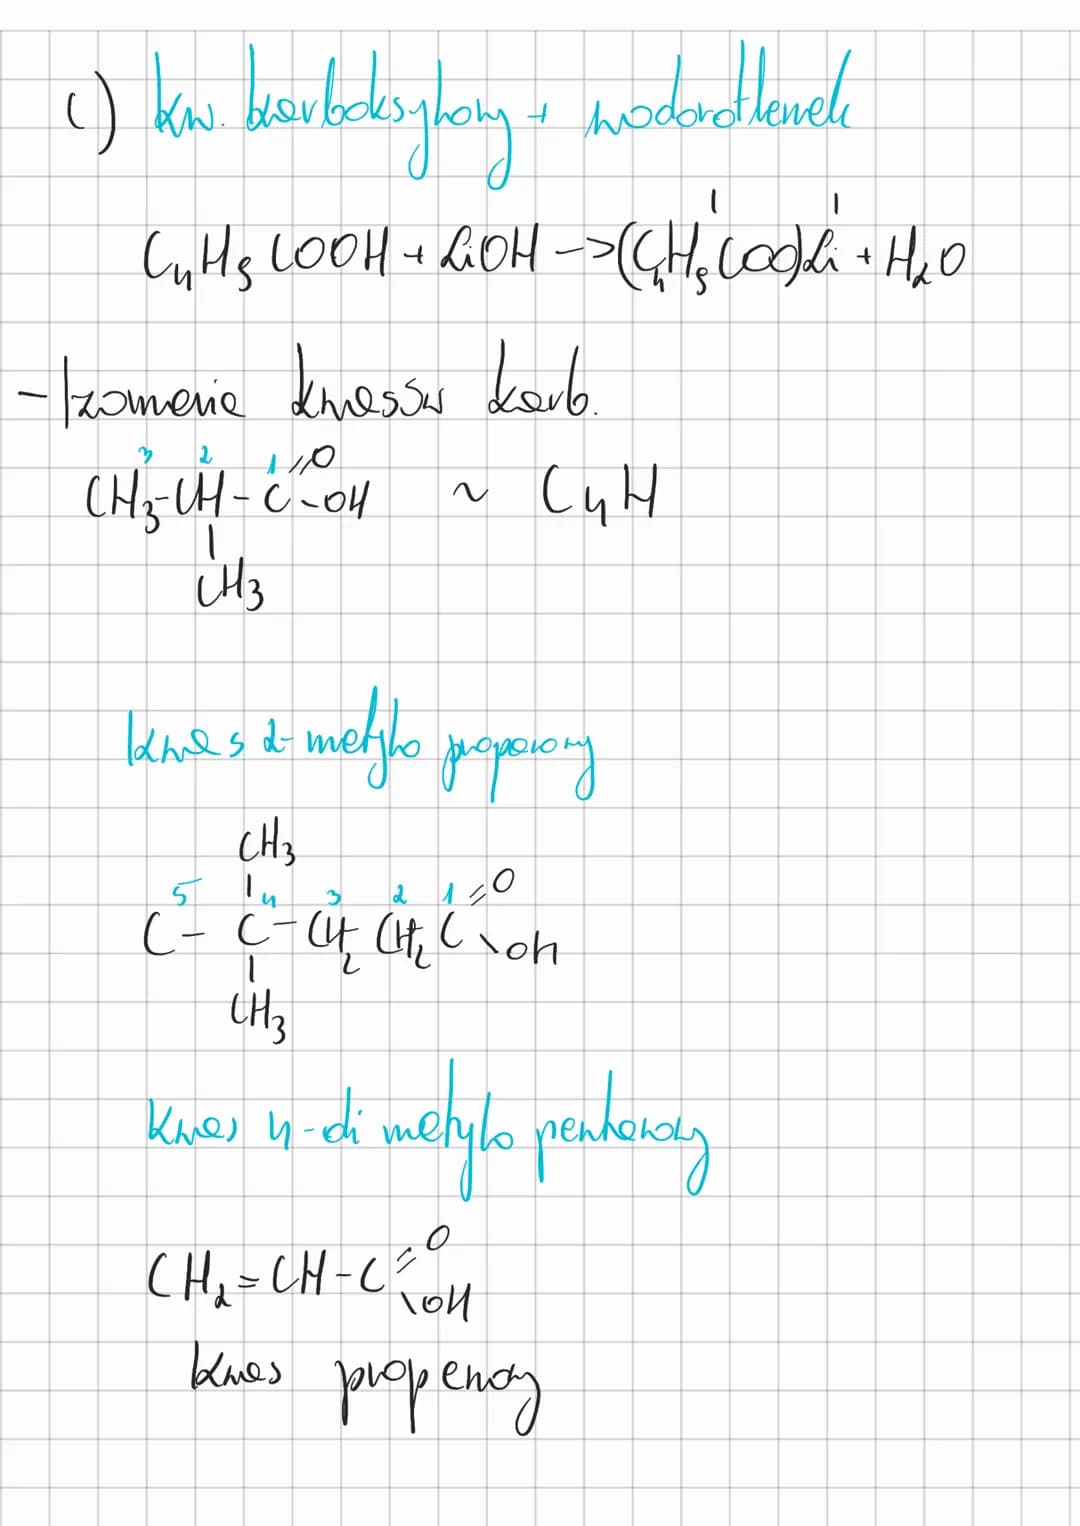 c) kw. karboksylowy + wodorotlenek
I I
C4H5COOH + LiOH -> (C4H5COO)Li + H2O
- Izomeria kwasów karb.
3 2 1 =O
CH3-CH-C-OH ~ C4H
|
CH3
kwas 2-metylo propanowy
CH3
5 | 4 3 2 1 =O
C - C - CH2 CH2 C \oh
|
CH3
Kwas 4-di metylo pentanowy
=O
CH2=CH-C
\OH
kwas propenowy